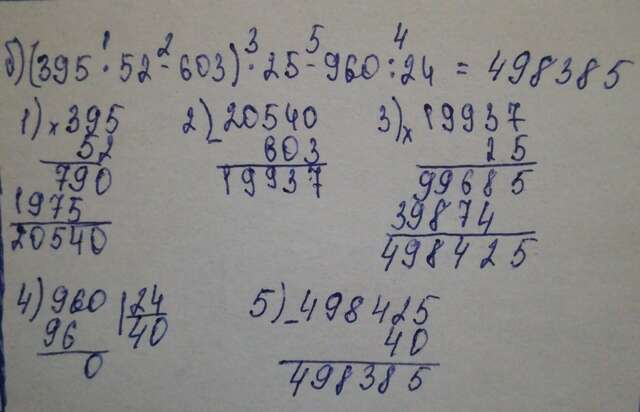 б) (395 · 52 - 603) · 25 - 960 : 24 = 498385
1 2 3 5 4
1) x 395 2) - 20540 3) x 19937
52 603 25
790 19937 99685
1975 39874
20540 498425
4) 960 | 24 5) - 498425
96 40 40
0 498385